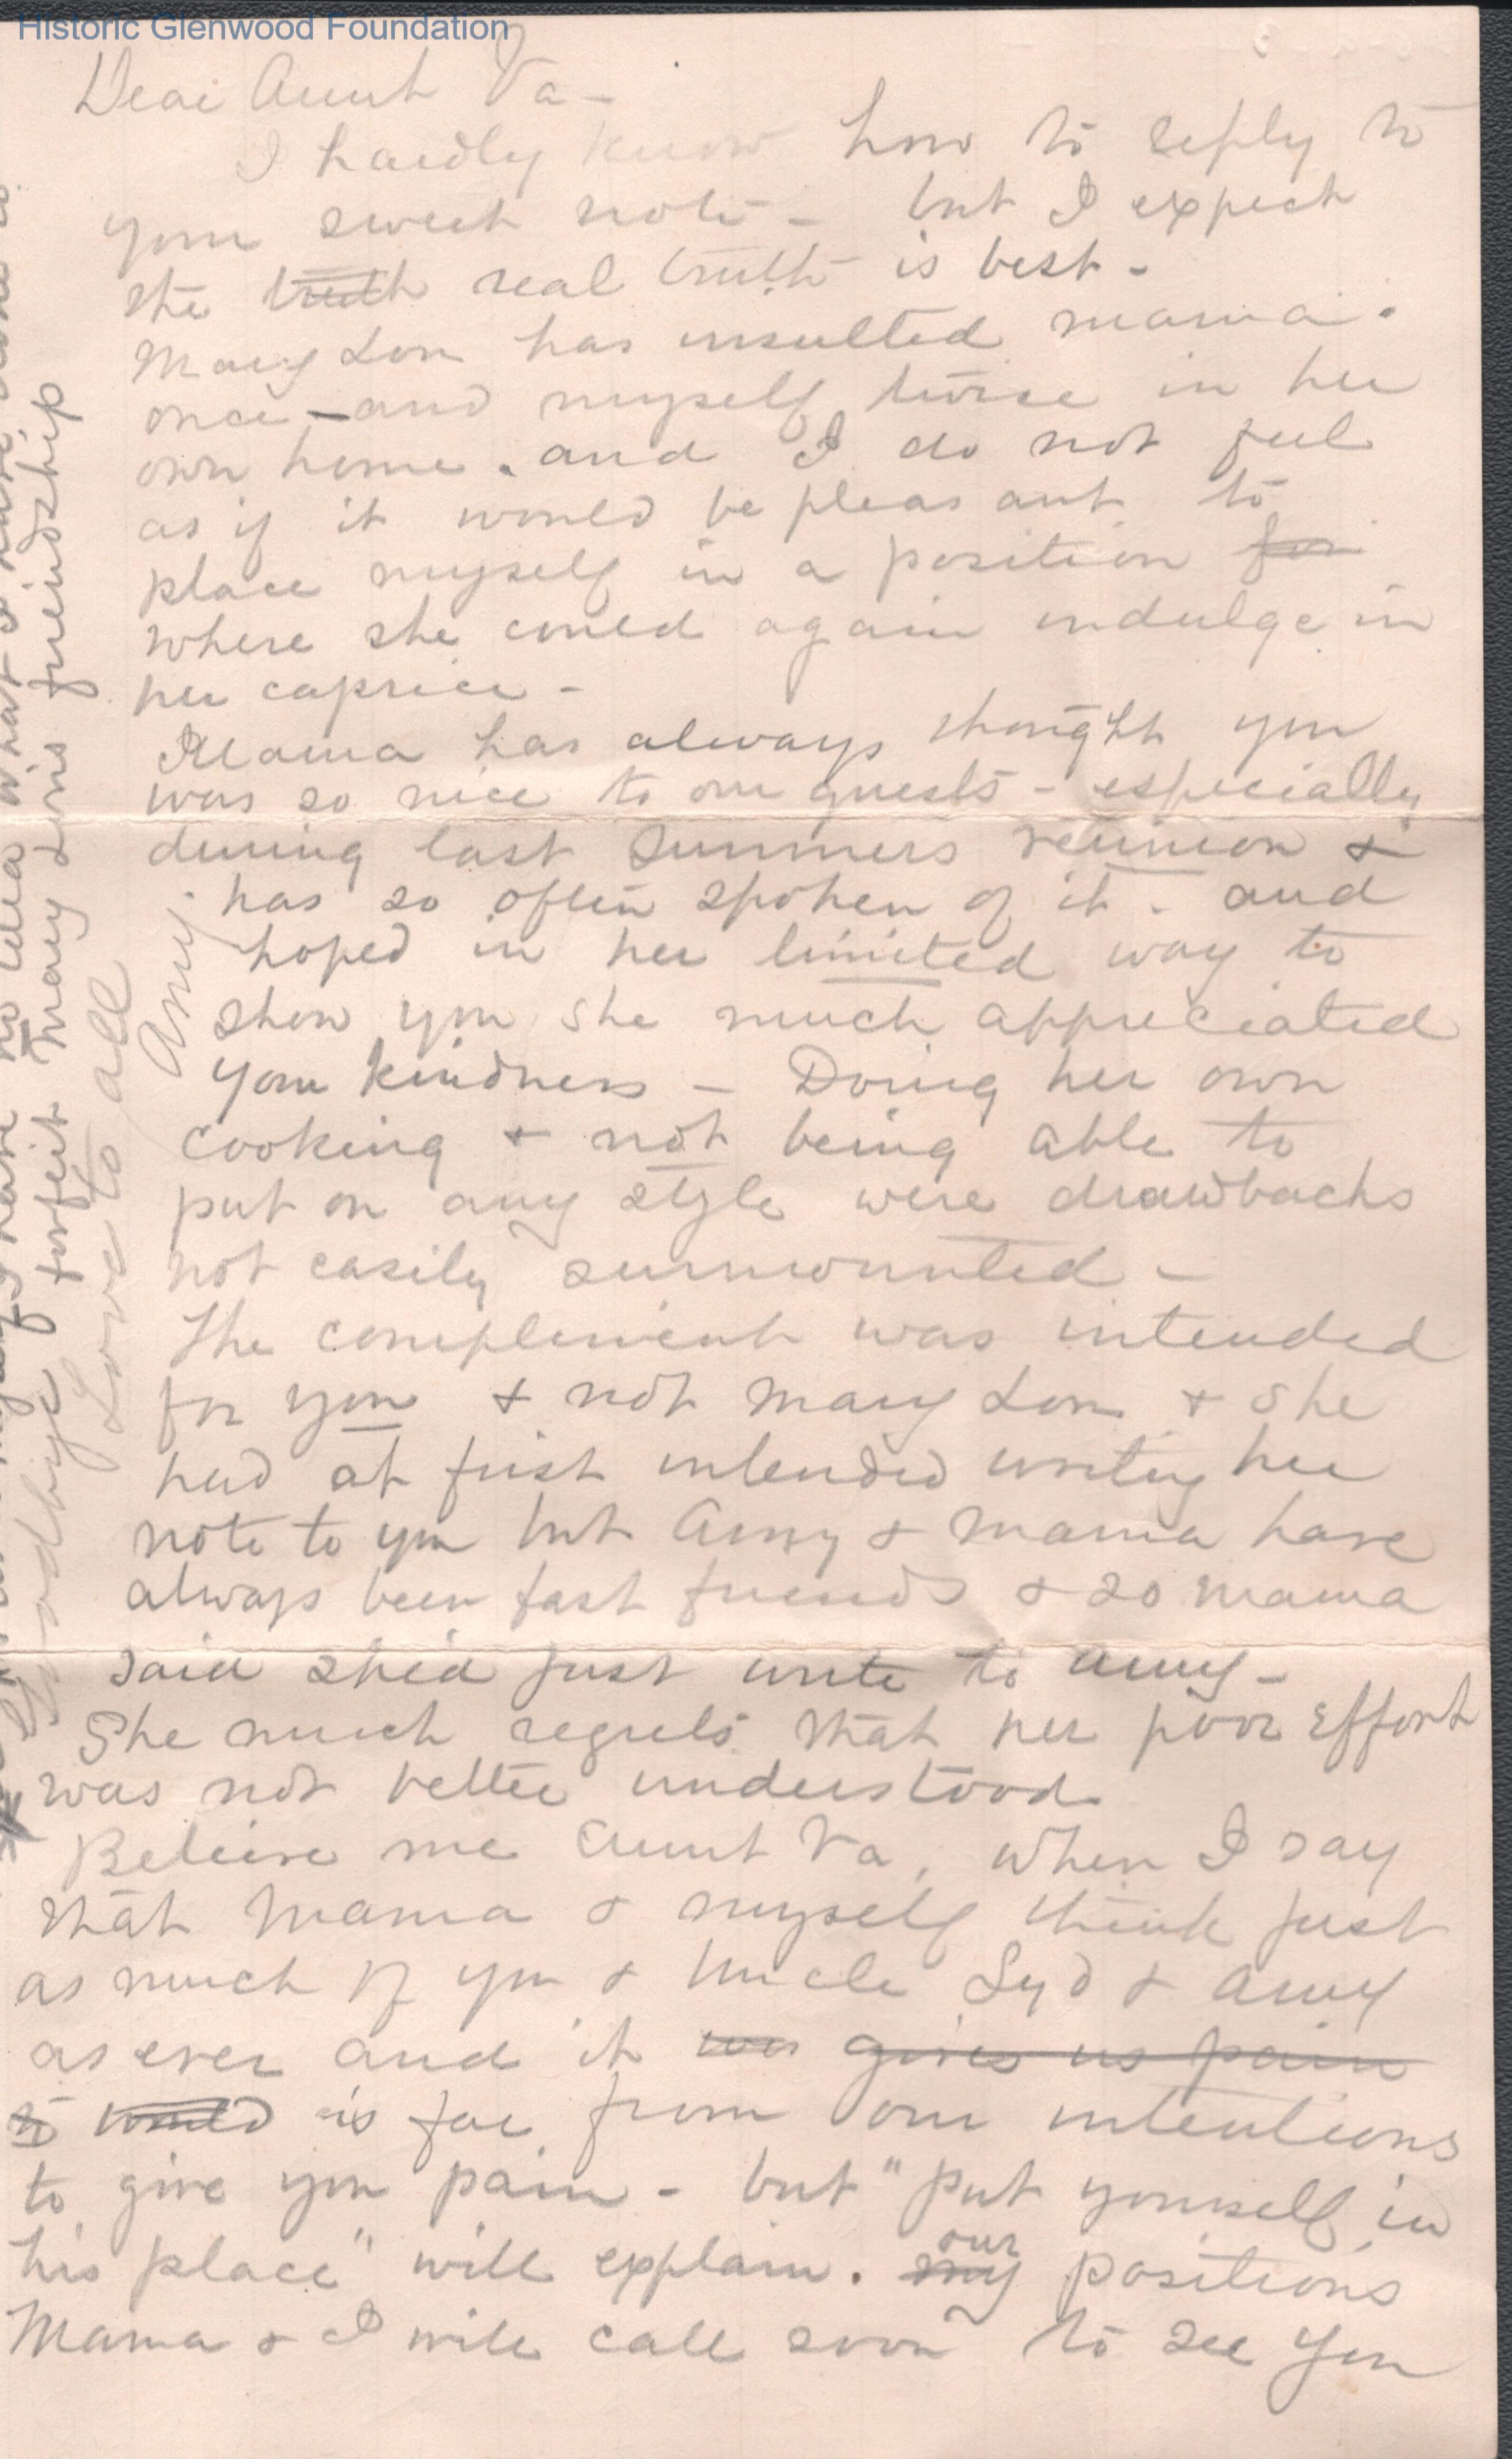 Historic Glenwood Foundation
Dear Aunt Va -
I hardly know how to reply to
your sweet note - but I expect
the truth real truth is best -
Mary Lou has insulted mama
once - and myself twice in her
own home. and I do not feel
as if it would be pleasant to
place myself in a position for
where she could again indulge in
her caprice -
Mama has always thought you
was so nice to our guests - especially
during last Summers reunion &
has so often spoken of it - and
hoped in her limited way to
show you she much appreciated
your kindness - Doing her own
cooking & not being able to
put on any style were drawbacks
not easily surmounted -
The compliment was intended
for you & not Mary Lou & she
had at first intended writing her
note to you but Amy & Mama have
always been fast friends & so mama
said she'd just write to Amy -
She much regrets that her poor effort
was not better understood.
Believe me Aunt Va, when I say
that Mama & myself think just
as much of you & Uncle Syd & Amy
as ever and it was gives us pain
to would is far from our intentions
to give you pain - but "put yourself in
his place" will explain. my our positions
Mama & I will call soon to see you
no idea what I have done to
forfeit Mary Lou's friendship
Goodbye
Love to all
Amy.